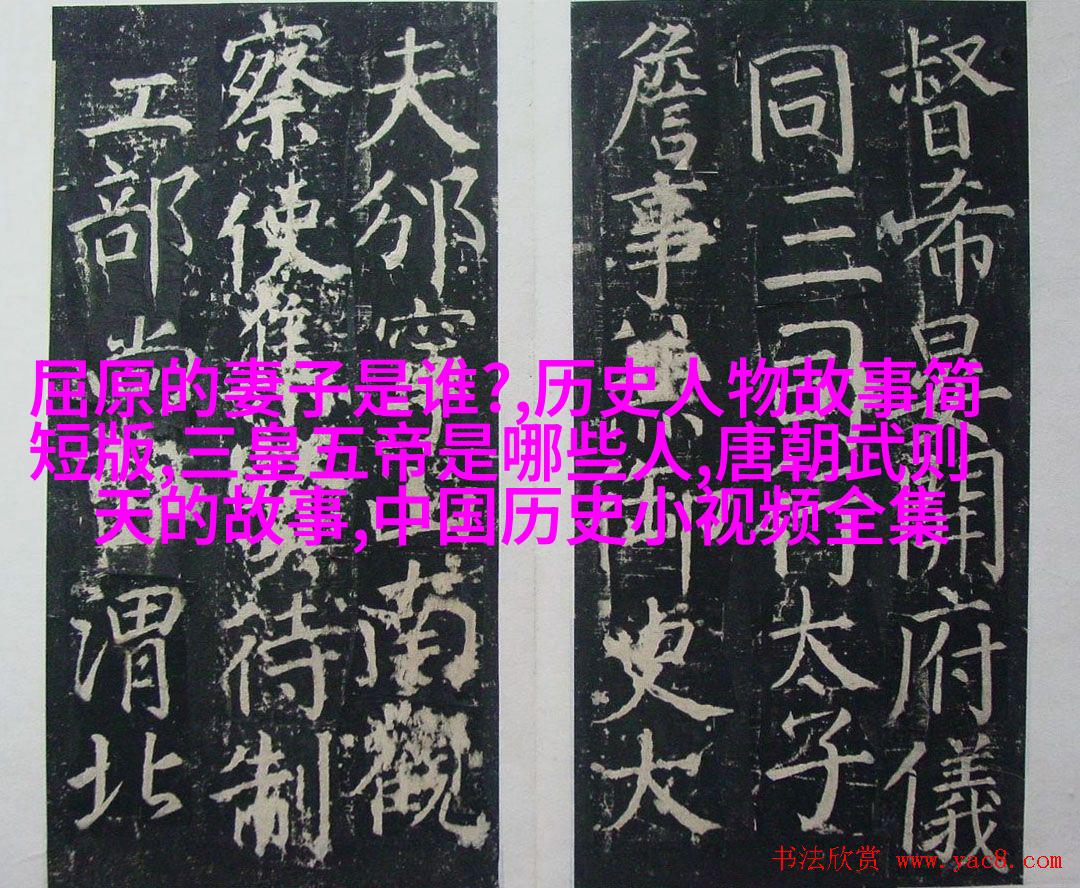 督希開府儀
同三司行太子
詹事兼御史大
夫邠寧南觀
察使待制
工部尚渭北
屈原的妻子是谁?,历史人物故事简
短版,三皇五帝是哪些人,唐朝武则
天的故事,中国历史小视频全集
书法欣赏 www.yac8.com